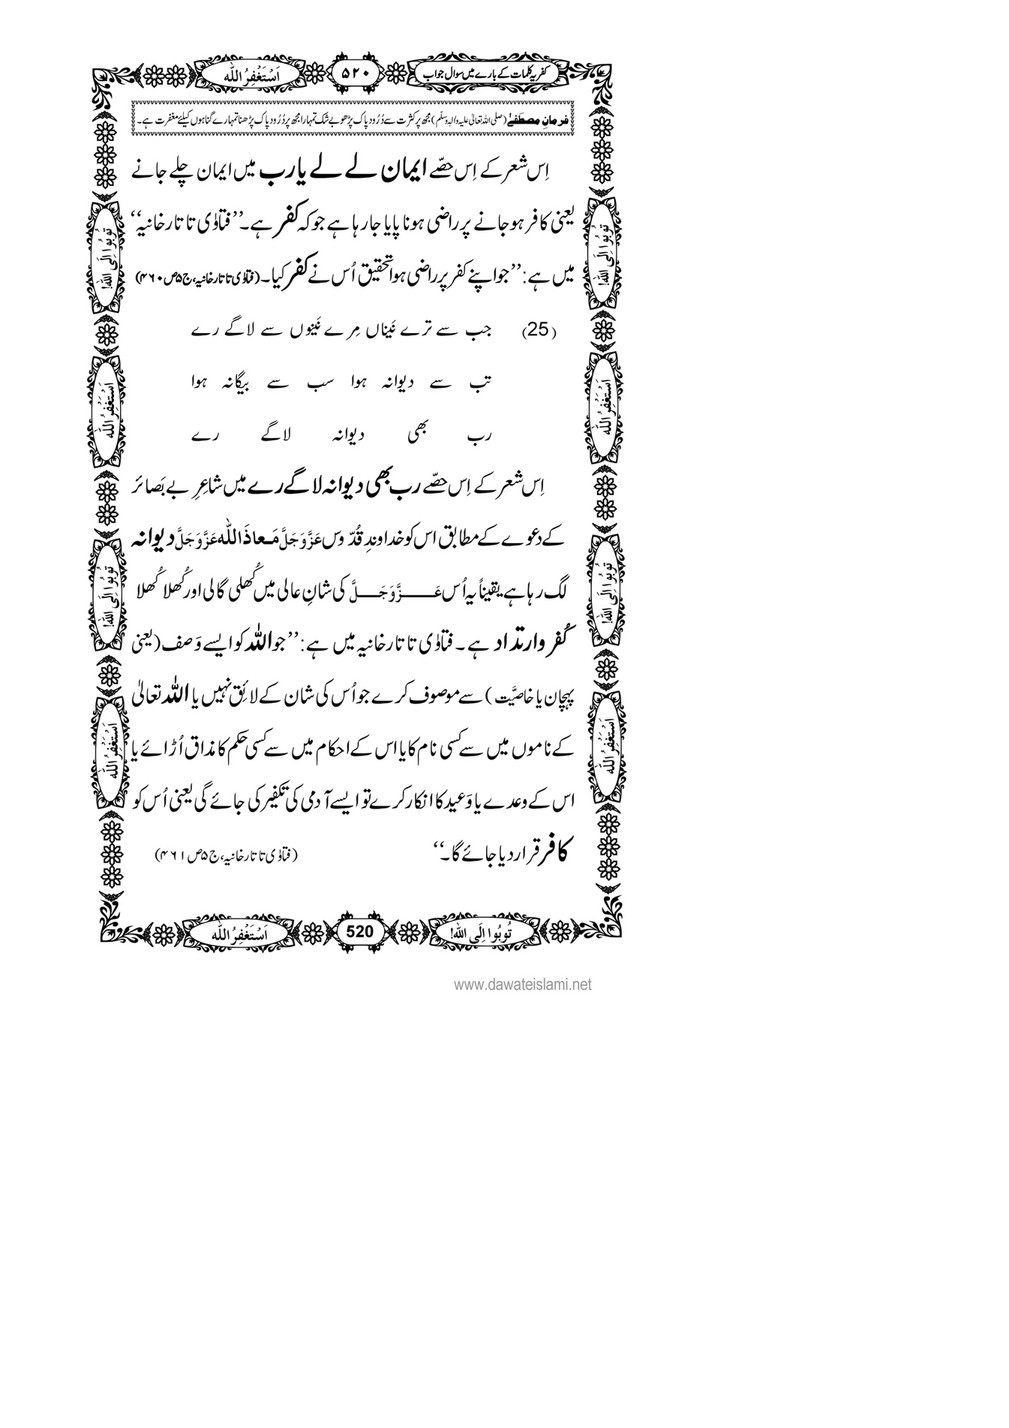 کفریہ کلمات کے بارے میں سوال جواب ۵۲۰ اَسْتَغْفِرُ اللّٰه
فرمانِ مصطفےٰ (صلی اللہ تعالیٰ علیہ والہ وسلم) مجھ پر کثرت سے دُرُود پاک پڑھو بے شک تمہارا مجھ پر دُرُود پاک پڑھنا تمہارے گناہوں کیلئے مغفرت ہے۔
اِس شعر کے اِس حصّے ایمان لے لے یارب میں ایمان چلے جانے
یعنی کافر ہو جانے پر راضی ہونا پایا جا رہا ہے جو کہ کفر ہے۔ ’’فتاوٰی تاتارخانیہ‘‘
میں ہے: ’’جو اپنے کفر پر راضی ہوا تحقیق اُس نے کفر کیا۔ (فتاوٰی تاتارخانیہ، ج۵ ص۴۶۰)
(25) جب سے ترے نَیناں مِرے نَینوں سے لاگے رے
تب سے دیوانہ ہوا سب سے بیگانہ ہوا
رب بھی دیوانہ لاگے رے
اِس شعر کے اِس حصّے رب بھی دیوانہ لاگے رے میں شاعرِ بے بَصائر
کے دعوے کے مطابق اس کو خداوندِ قُدّوس عَزَّوَجَلَّ مَعاذَ اللّٰه عَزَّوَجَلَّ دیوانہ
لگ رہا ہے یقیناً یہ اُس عَزَّوَجَلَّ کی شانِ عالی میں کُھلی گالی اور کُھلا کُھلا
کُفر و ارتداد ہے۔ فتاوٰی تاتارخانیہ میں ہے: ’’جو اللّٰه کو ایسے وَصف (یعنی
پہچان یا خاصیَّت) سے موصوف کرے جو اُس کی شان کے لائق نہیں یا اللّٰه تعالیٰ
کے ناموں میں سے کسی نام کا یا اس کے احکام میں سے کسی حکم کا مذاق اُڑائے یا
اس کے وعدے یا وَعید کا انکار کرے تو ایسے آدمی کی تکفیر کی جائے گی یعنی اُس کو
کافر قرار دیا جائے گا۔‘‘ (فتاوٰی تاتارخانیہ، ج۵ ص۴۶۱)
تُوبُوا اِلَی اللّٰه!
اَسْتَغْفِرُ اللّٰه
تُوبُوا اِلَی اللّٰه!
اَسْتَغْفِرُ اللّٰه
تُوبُوا اِلَی اللّٰه!
اَسْتَغْفِرُ اللّٰه
تُوبُوا اِلَی اللّٰه!
اَسْتَغْفِرُ اللّٰه
تُوبُوا اِلَی اللّٰه! 520 اَسْتَغْفِرُ اللّٰه
www.dawateislami.net